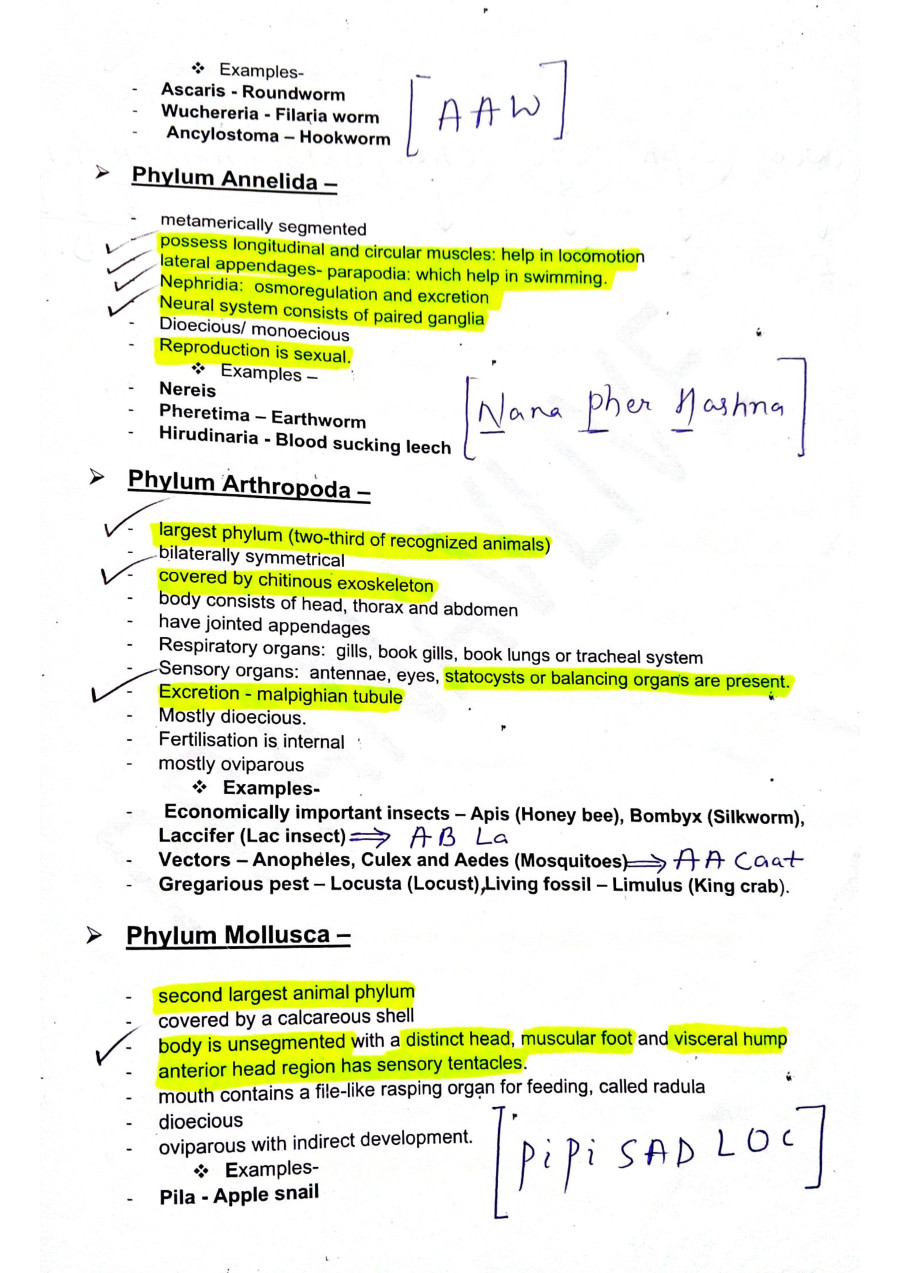 ❖ Examples-
- Ascaris - Roundworm
- Wuchereria - Filaria worm
- Ancylostoma – Hookworm
[AAW]
➢ Phylum Annelida –
- metamerically segmented
- possess longitudinal and circular muscles: help in locomotion
- lateral appendages- parapodia: which help in swimming.
- Nephridia: osmoregulation and excretion
- Neural system consists of paired ganglia
- Dioecious/ monoecious
- Reproduction is sexual.
❖ Examples –
- Nereis
- Pheretima – Earthworm
- Hirudinaria - Blood sucking leech
[Nana Pher Hashna]
➢ Phylum Arthropoda –
- largest phylum (two-third of recognized animals)
- bilaterally symmetrical
- covered by chitinous exoskeleton
- body consists of head, thorax and abdomen
- have jointed appendages
- Respiratory organs: gills, book gills, book lungs or tracheal system
- Sensory organs: antennae, eyes, statocysts or balancing organs are present.
- Excretion - malpighian tubule
- Mostly dioecious.
- Fertilisation is internal
- mostly oviparous
❖ Examples-
- Economically important insects – Apis (Honey bee), Bombyx (Silkworm),
Laccifer (Lac insect) ⟹ AB La
- Vectors – Anopheles, Culex and Aedes (Mosquitoes) ⟹ AA Caat
- Gregarious pest – Locusta (Locust),Living fossil – Limulus (King crab).
➢ Phylum Mollusca –
- second largest animal phylum
- covered by a calcareous shell
- body is unsegmented with a distinct head, muscular foot and visceral hump
- anterior head region has sensory tentacles.
- mouth contains a file-like rasping organ for feeding, called radula
- dioecious
- oviparous with indirect development.
❖ Examples-
- Pila - Apple snail
[PiPi SAD LOC]